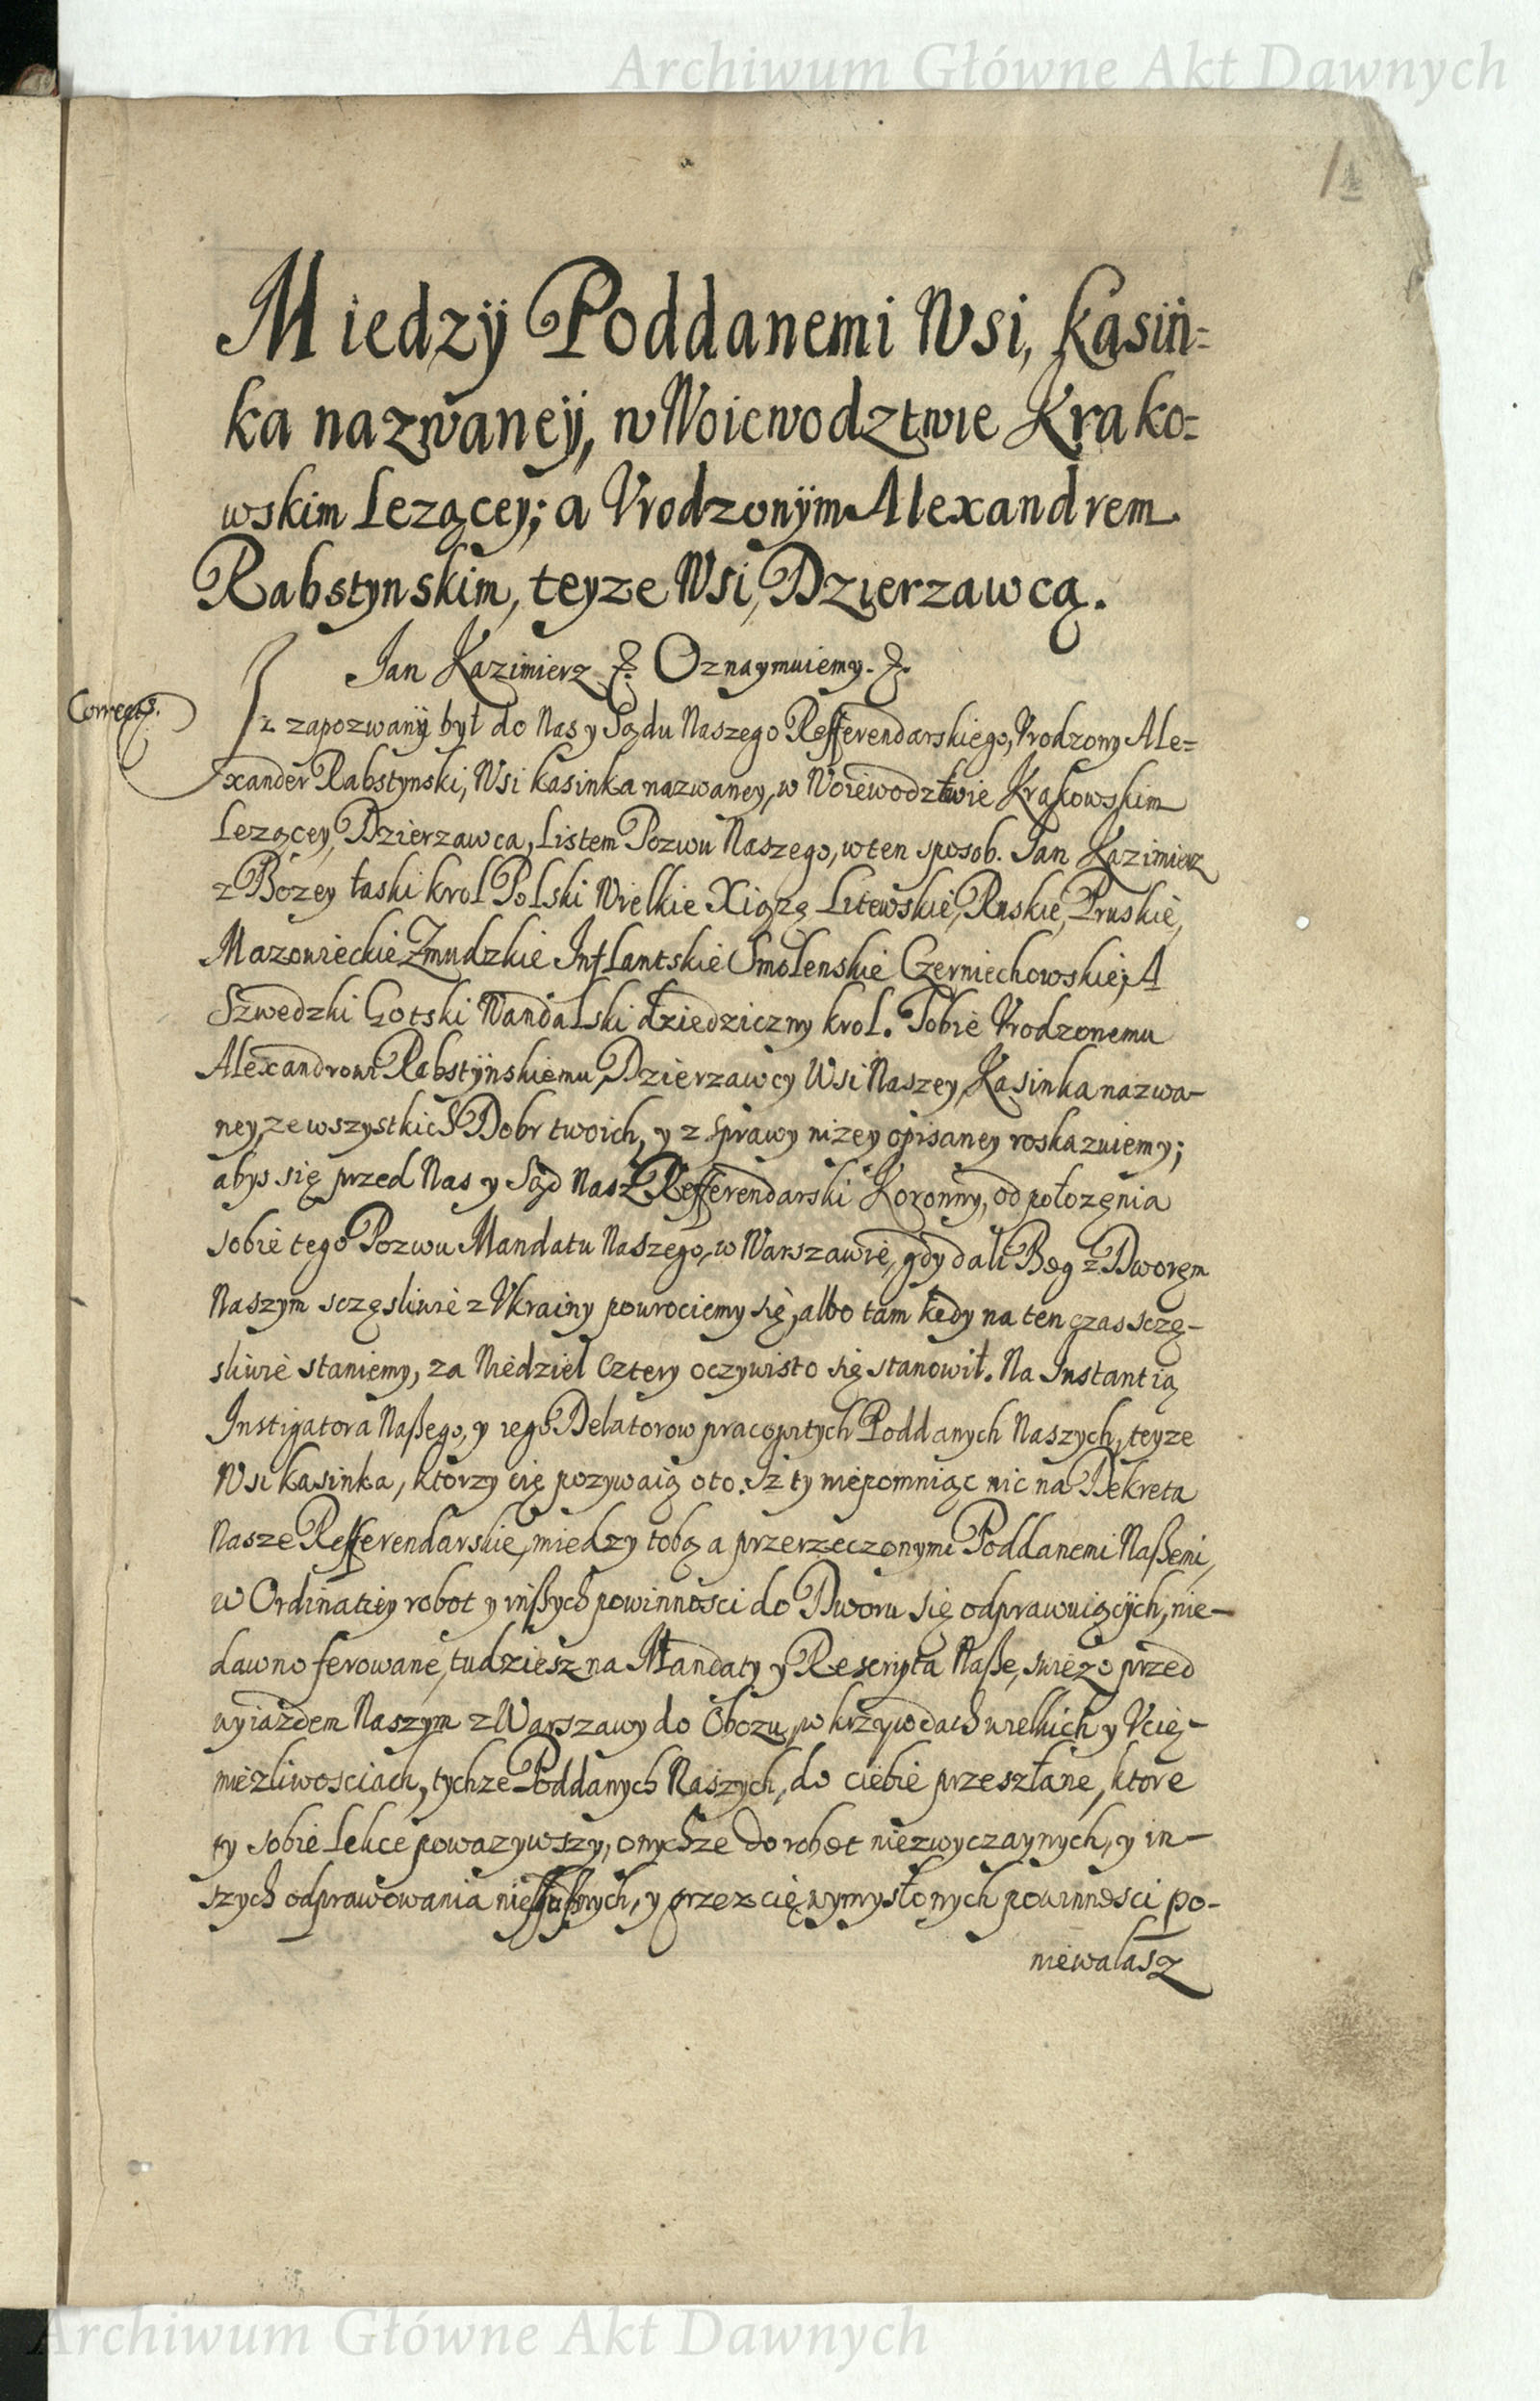 Archiwum Główne Akt Dawnych
1
Miedzÿ Poddanemi Wsi, Kasiń=
ka nazwaneÿ, w Woiewodztwie Krako=
wskim Lezącey; a Vrodzonÿm Alexandrem
Rabstynskim, teyze Wsi, Dzierzawcą.
Jan Kazimierz &. Oznaymuiemy. &.
Iz zapozwanÿ był do Nas y Sądu Naszego Refferendarskiego, Vrodzony Ale=
xander Rabstynski, Wsi Kasinka nazwaney, w Woiewodztwie Krakowskim
Lezącey, Dzierzawca, Listem Pozwu Naszego, w ten sposob. Jan Kazimierz
z Bozey łaski krol Polski Wielkie Xiązę Litewskie, Ruskie, Pruskie,
Mazowieckie Zmudzkie Inflantskie Smolenskie Czerniechowskie; A
Szwedzki Gotski Wandalski dziedziczny krol. Tobie Vrodzonemu
Alexandrowi Rabstÿnskiemu, Dzierzawcy Wsi Naszey, Kasinka nazwa-
ney, ze wszystkich Dobr twoich, y z sprawy nizey opisaney roskazuiemy;
abys się przed Nas y Sąd Nasz Refferendarski Koronny, od połozęnia
sobie tego Pozwu Mandatu Naszego, w Warszawie, gdy da li Bog z Dworęm
Naszym sczęsliwie z Vkrainy powrociemy się, albo tam kędy na ten czas sczę-
sliwie staniemy, za Niedziel Cztery oczywisto się stanowił. Na Instantią
Instigatora Naßego, y iego Delatorow pracowitych Poddanych Naszych, teyze
Wsi Kasinka, ktorzy cię pozywaią oto. Iz ty niepomniąc nic na Dekreta
Nasze Refferendarskie, miedzy tobą a przerzeczonymi Poddanemi Naßemi,
w Ordinatiey robot y inßych powinnosci do Dworu się odprawuiącÿch, nie-
dawno ferowane, tudziesz na Mandaty y Rescripta Naße, swiezo przed
wyiazdem Naszym z Warszawy do Obozu, w krzywdach wielkich y Vcię-
miezliwosciach, tychze Poddanych Naszych, do ciebie przesztane, ktore
ty sobie lekce powazywszy, onychze do robot niezwyczaynych, y in-
szych odprawowania niesłußnych, y przez cię wymysłonych powinnosci po-
niewalasz
Archiwum Główne Akt Dawnych